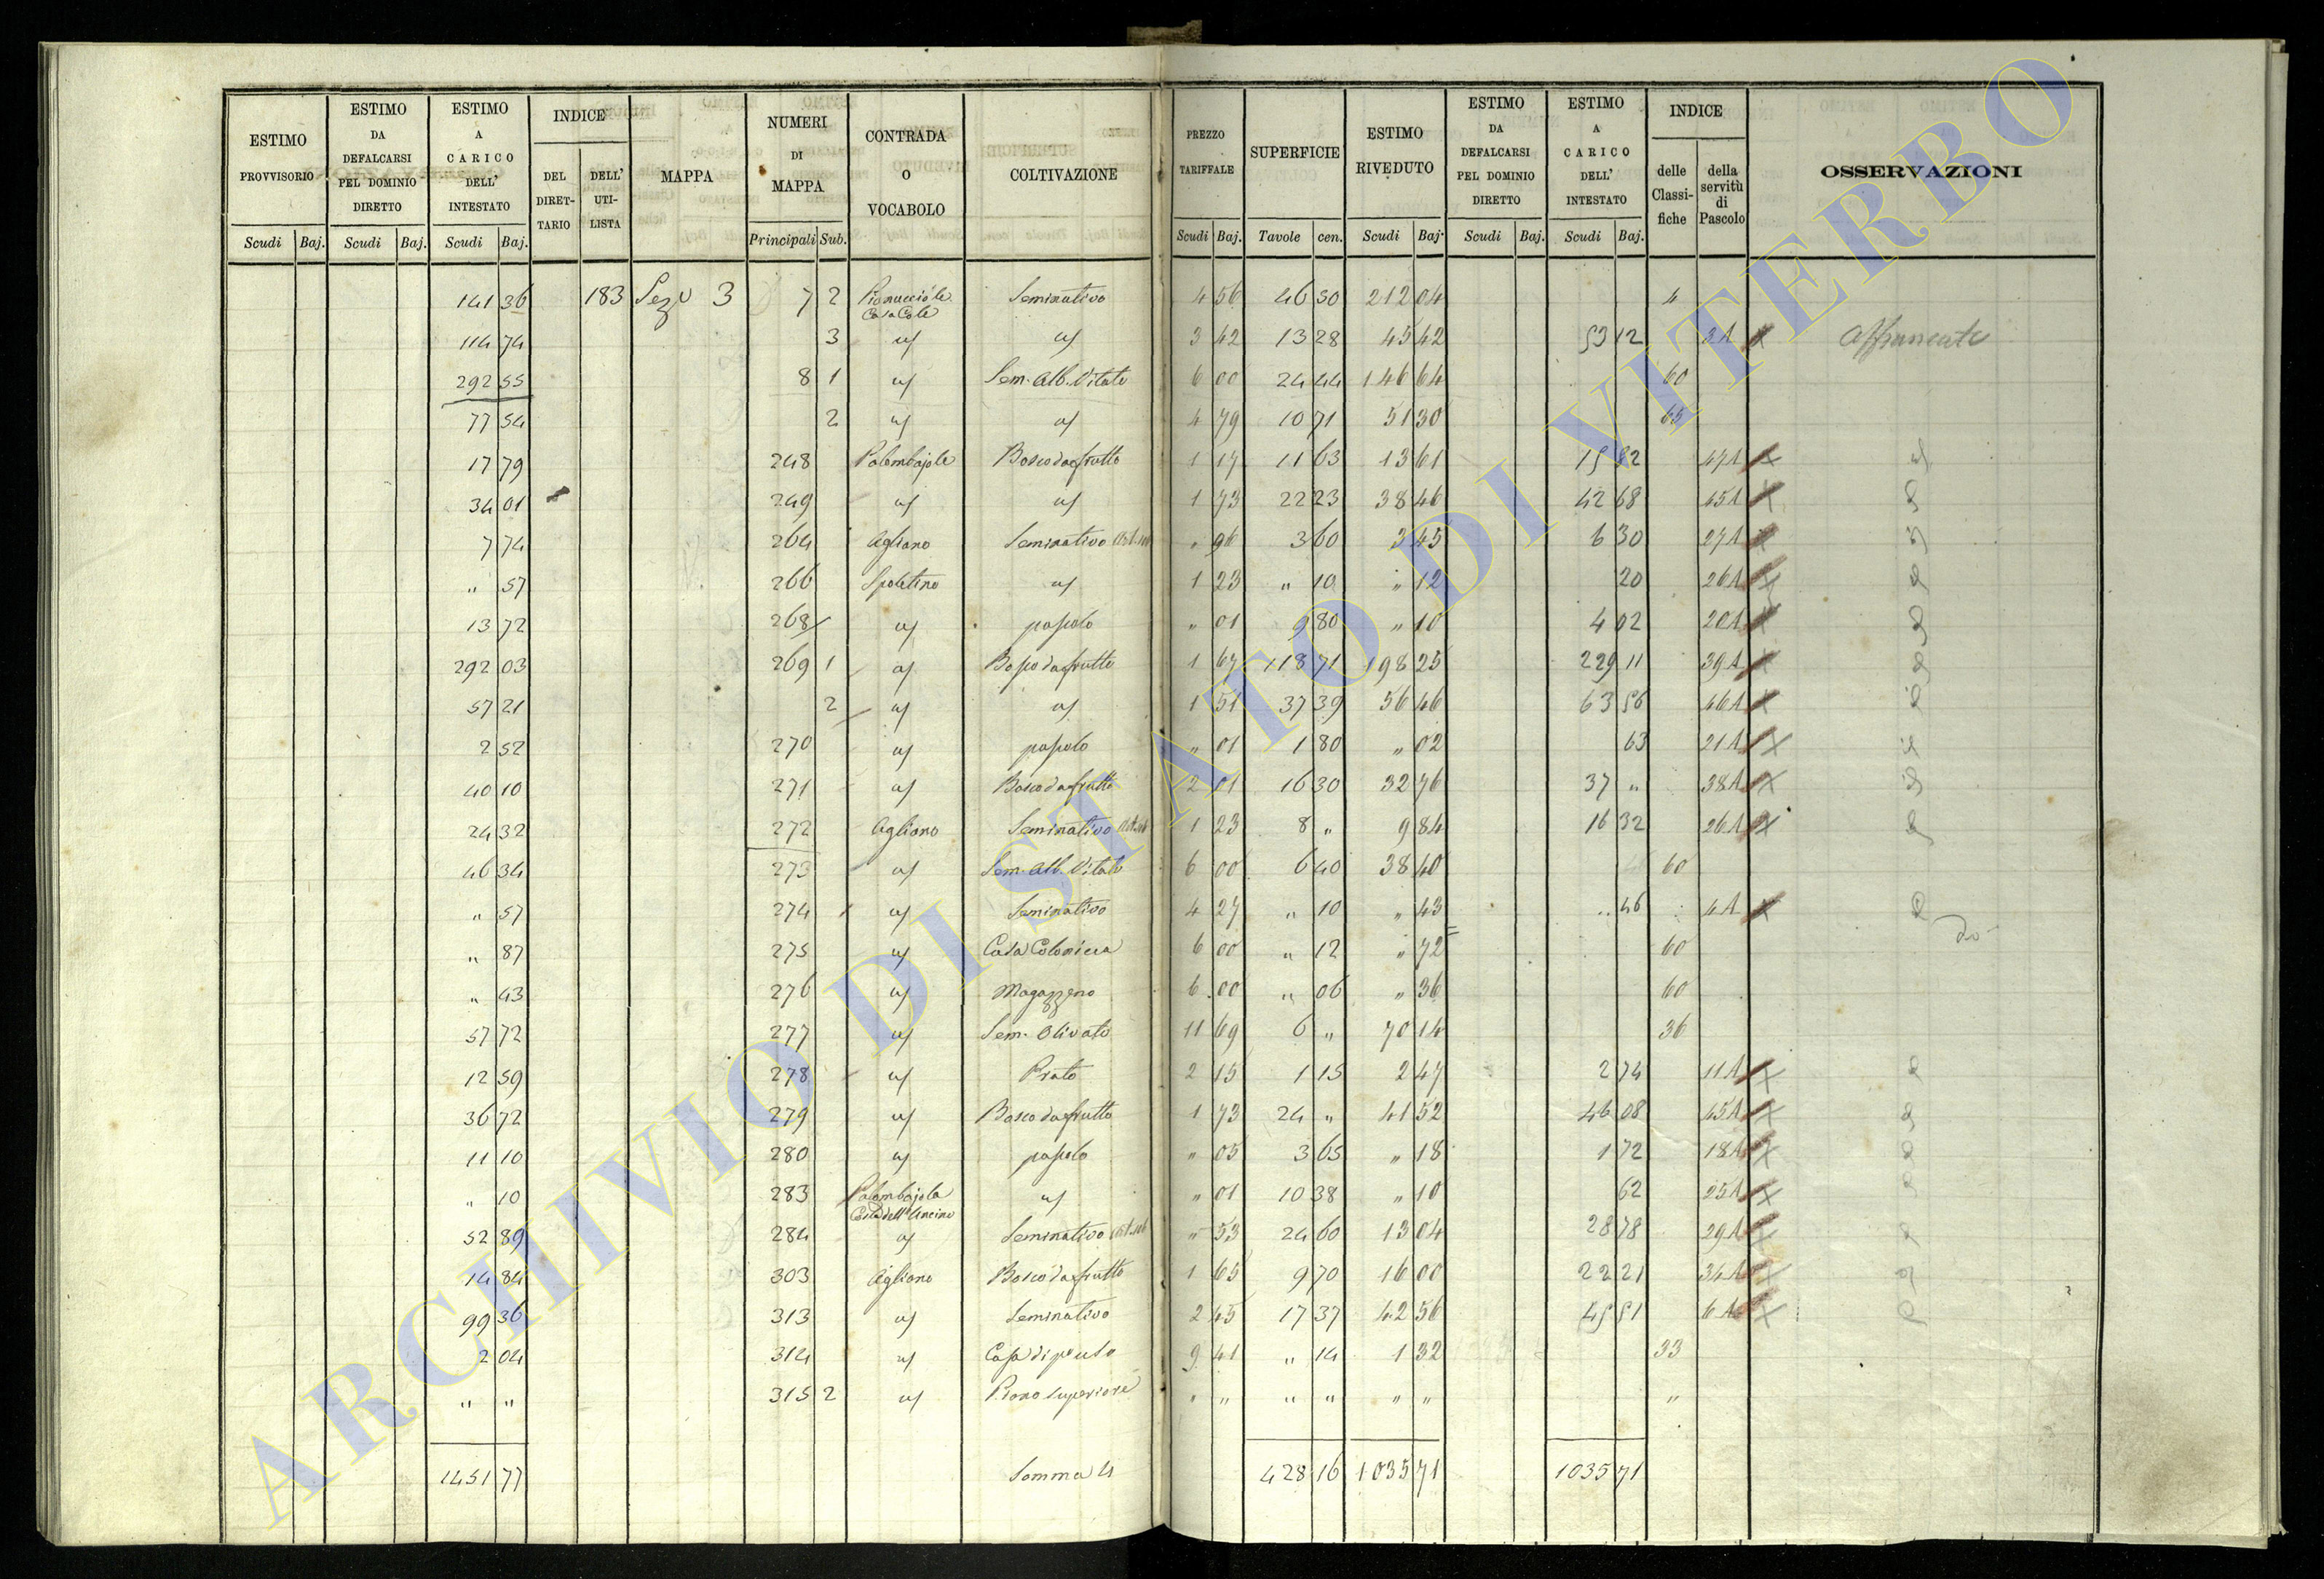 ESTIMO PROVVISORIO | ESTIMO DA DEFALCARSI PEL DOMINIO DIRETTO | ESTIMO A CARICO DELL' INTESTATO | INDICE DEL DIRETTARIO | DELL' UTILISTA | MAPPA | NUMERI DI MAPPA | CONTRADA O VOCABOLO | COLTIVAZIONE | PREZZO TARIFFALE | SUPERFICIE | ESTIMO RIVEDUTO | ESTIMO DA DEFALCARSI PEL DOMINIO DIRETTO | ESTIMO A CARICO DELL' INTESTATO | INDICE delle Classifiche | della servitù di Pascolo | OSSERVAZIONI
Scudi Baj. | Scudi Baj. | Scudi Baj. | Principali Sub. | Scudi Baj. | Tavole cen. | Scudi Baj. | Scudi Baj. | Scudi Baj.
141 36 183 3 7 2 Seminativo 4 56 46 30 212 04 4
114 74 3 3 42 13 28 45 42 53 12 3A
292 55 8 1 Sem. Alb. Vitato 6 00 24 44 146 64 60
77 54 2 4 79 10 71 51 30 65
17 79 248 Palombajole Bosco da frutto 1 17 11 63 13 61 15 82 47A
34 01 249 1 73 22 23 38 46 42 68 45A
7 74 264 Agliano Seminativo " 96 3 60 3 45 6 30 27A
" 57 266 Spoletino 1 23 " 10 " 12 20 26A
13 72 268 pascolo " 01 9 80 " 10 4 02 20A
292 03 269 1 Bosco da frutto 1 67 118 71 198 25 229 11 39A
57 21 2 1 51 37 39 56 46 63 56 46A
2 52 270 pascolo " 01 1 80 " 02 63 21A
40 10 271 Bosco da frutto 2 01 16 30 32 76 37 " 38A
24 32 272 Agliano Seminativo 1 23 8 " 9 84 16 32 26A
46 34 273 Sem. Alb. Vitato 6 00 6 40 38 40 60
" 57 274 Seminativo 4 27 " 10 " 43 " 46 4A
" 87 275 Casa Colonica 6 00 " 12 " 72 60
" 43 276 Magazzeno 6 00 " 06 " 36 60
57 72 277 Sem. Olivato 11 69 6 " 70 14 36
12 59 278 Prato 2 15 1 15 2 47 2 74 11A
36 72 279 Bosco da frutto 1 73 24 " 41 52 46 08 45A
11 10 280 pascolo " 05 3 65 " 18 1 72 18A
" 10 283 Palombajola " 01 10 38 " 10 62 25A
52 89 284 Seminativo " 53 24 60 13 04 28 78 29A
14 84 303 Agliano Bosco da frutto 1 65 9 70 16 00 22 21 34A
99 36 313 Seminativo 2 45 17 37 42 56 45 51 6A
2 04 314 9 41 " 14 1 32 33
" " 315 2 Piano superiore " " " " " " "
1451 77 Somma 428 16 1035 71 1035 71
ARCHIVIO DI STATO DI VITERBO